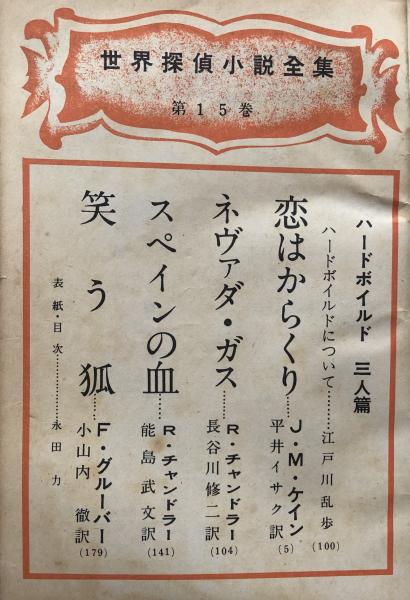 世界探偵小説全集
第15巻
ハードボイルド 三人篇
ハードボイルドについて………江戸川乱歩(100)
恋はからくり……J・M・ケイン
平井イサク訳(5)
ネヴァダ・ガス……R・チャンドラー
長谷川修二訳(104)
スペインの血……R・チャンドラー
能島武文訳(141)
笑う狐……F・グルーバー
小山内徹訳(179)
表紙・目次…………永田力